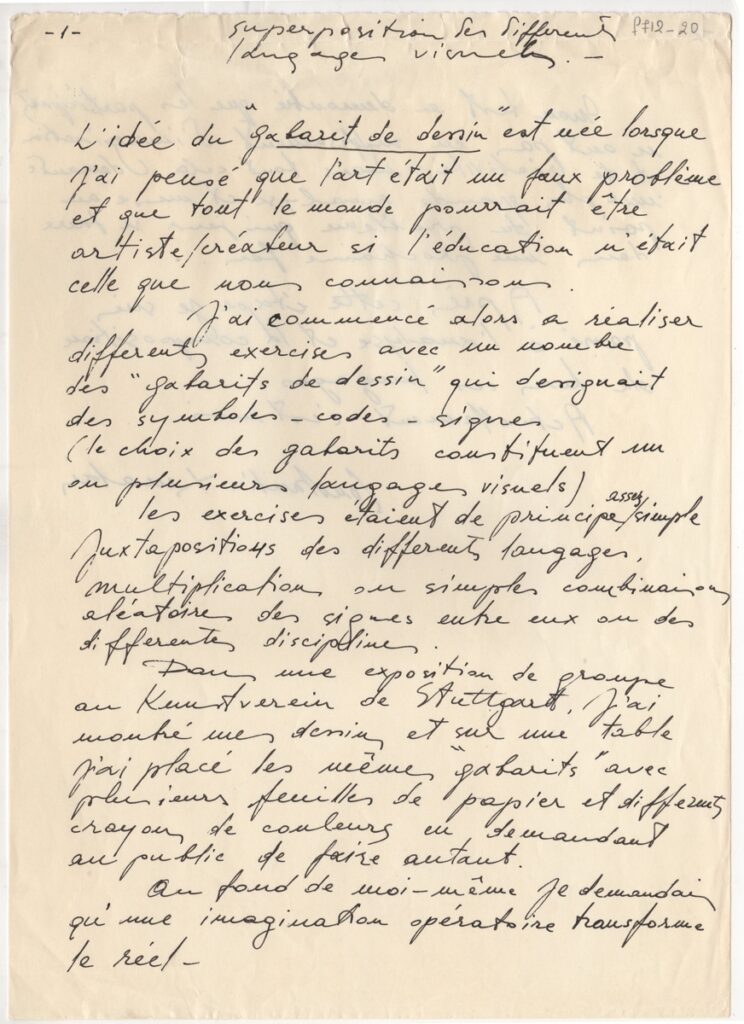 -1-
superposition des differents
langages visuels. -
ff12-20
L'idée du "gabarit de dessin" est née lorsque
j'ai pensé que l'art était un faux problème
et que tout le monde pourrait être
artiste/créateur si l'éducation n'était
celle que nous connaissons.
J'ai commencé alors a réaliser
differents exercises avec un nombre
des "gabarits de dessin" qui designait
des symboles - codes - signes
(le choix des gabarits constituent un
ou plusieurs langages visuels)
les exercises étaient de principe/simple
assez
juxtapositions des differents langages,
multiplication ou simples combinaisons
aléatoires des signes entre eux ou des
differentes disciplines.
Dans une exposition de groupe
au Kunstverein de Stuttgart, j'ai
montré mes dessins et sur une table
j'ai placé les mêmes "gabarits" avec
plusieurs feuilles de papier et differents
crayons de couleurs en demandant
au public de faire autant.
Au fond de moi-même je demandais
qu'une imagination opératoire transforme
le réel -